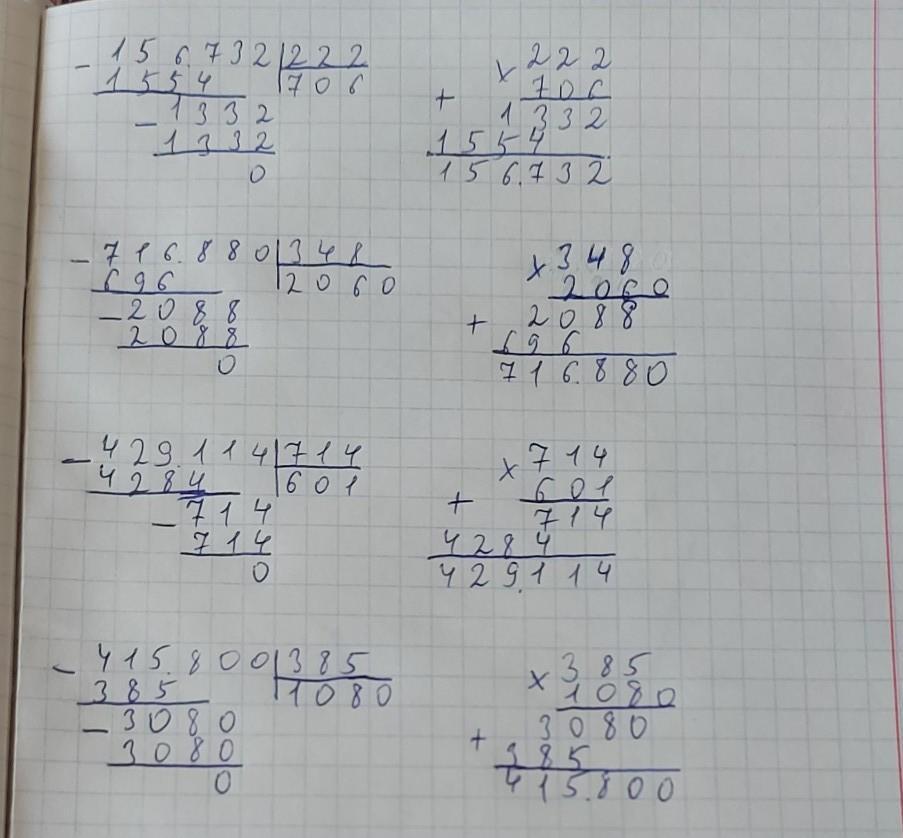 - 156.732 | 222 × 222
1554 | 706 + 706
- 1332 1332
1332 1554
0 156.732
- 716.880 | 348 × 348
696 | 2060 2060
- 2088 + 2088
2088 696
0 716.880
- 429.114 | 714 × 714
4284 | 601 + 601
- 714 714
714 4284
0 429.114
- 415.800 | 385 × 385
385 | 1080 1080
- 3080 + 3080
3080 385
0 415.800